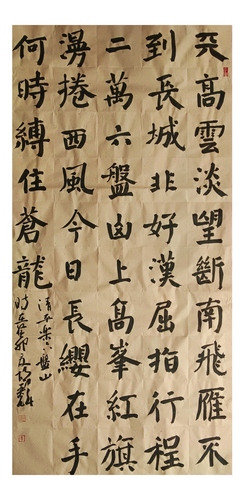 天高雲淡望斷南飛雁不
到長城非好漢屈指行程
二萬六盤山上高峯紅旗
漫捲西風今日長纓在手
何時縛住蒼龍
清平樂六盤山